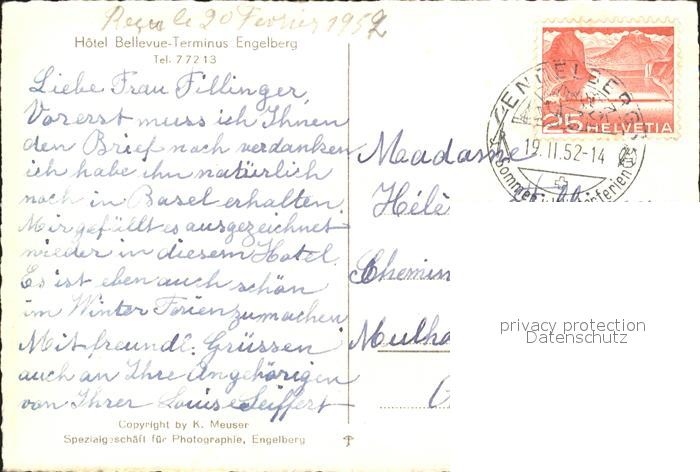 Reçu le 20 Février 1952
Hôtel Bellevue-Terminus Engelberg
Tel. 77213
Liebe Frau Fillinger,
Vorerst muss ich Ihnen
den Brief noch verdanken
ich habe ihn natürlich
noch in Basel erhalten.
Mir gefällt es ausgezeichnet
wieder in diesem Hotel.
Es ist eben auch schön
im Winter Ferien zu machen.
Mit freundl. Grüssen
auch an Ihre Angehörigen
von Ihrer Louise Seiffert
Copyright by K. Meuser
Spezialgeschäft für Photographie, Engelberg
25 HELVETIA
ENGELBERG
19.II.52-14
Sommer
ferien
Maadame
Hélè
Chemin
Mulho
privacy protection
Datenschutz